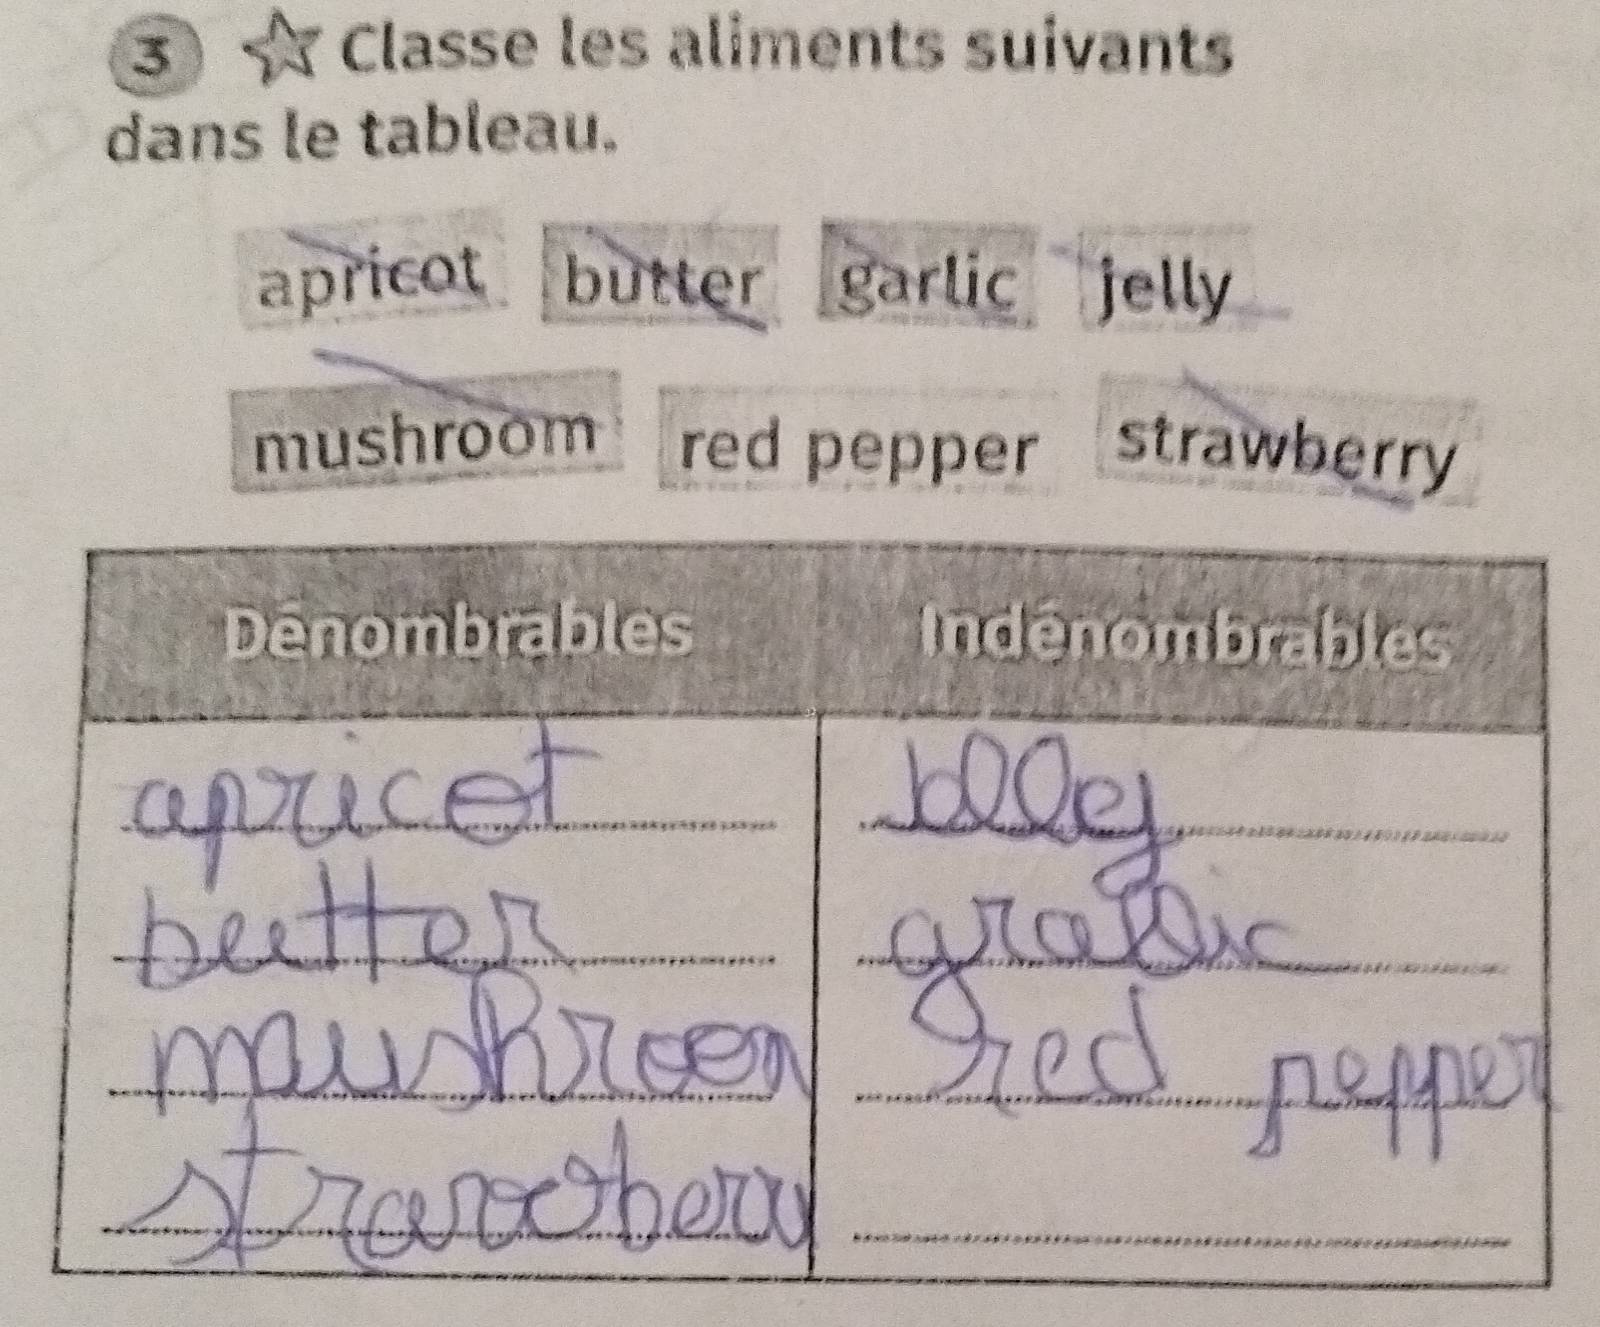 3 ☆ Classe les aliments suivants
dans le tableau.
apricot butter garlic jelly
mushroom red pepper strawberry
Dénombrables Indénombrables
apricot jelley
butter gralic
maushroom red pepper
strawberry